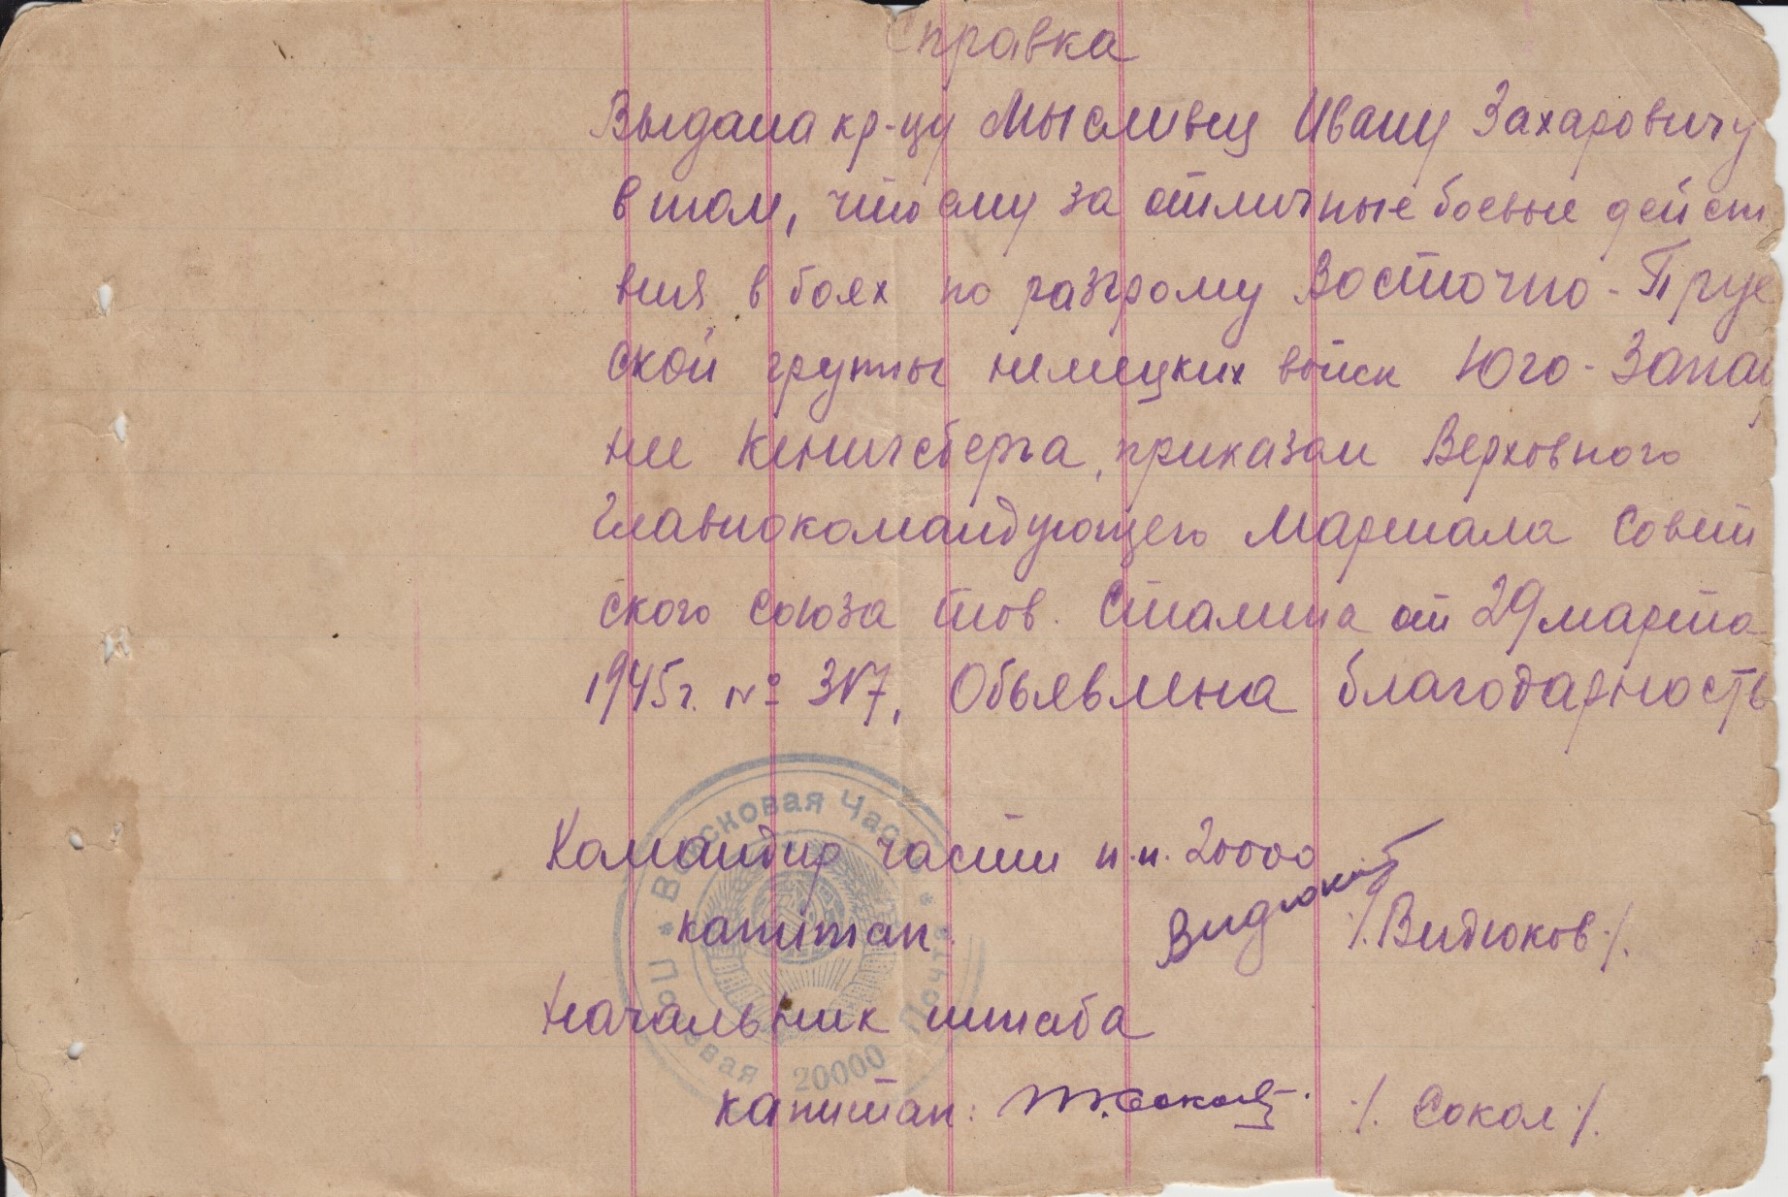 Справка
Выдана кр-цу Мысливцу Ивану Захаровичу
в том, что ему за отличные боевые дейст
вия в боях по разгрому Восточно-Прус
ской группы немецких войск Юго-Запад
нее Кенигсберга, приказом Верховного
Главнокомандующего Маршала Совет
ского Союза тов. Сталина от 29 марта
1945г. № 317. Объявлена благодарность
Командир части п.п. 20000
капитан Видюков /.Видюков./.
Начальник штаба
капитан: /. Сокол /.
Войсковая Часть * Полевая Почта * 20000